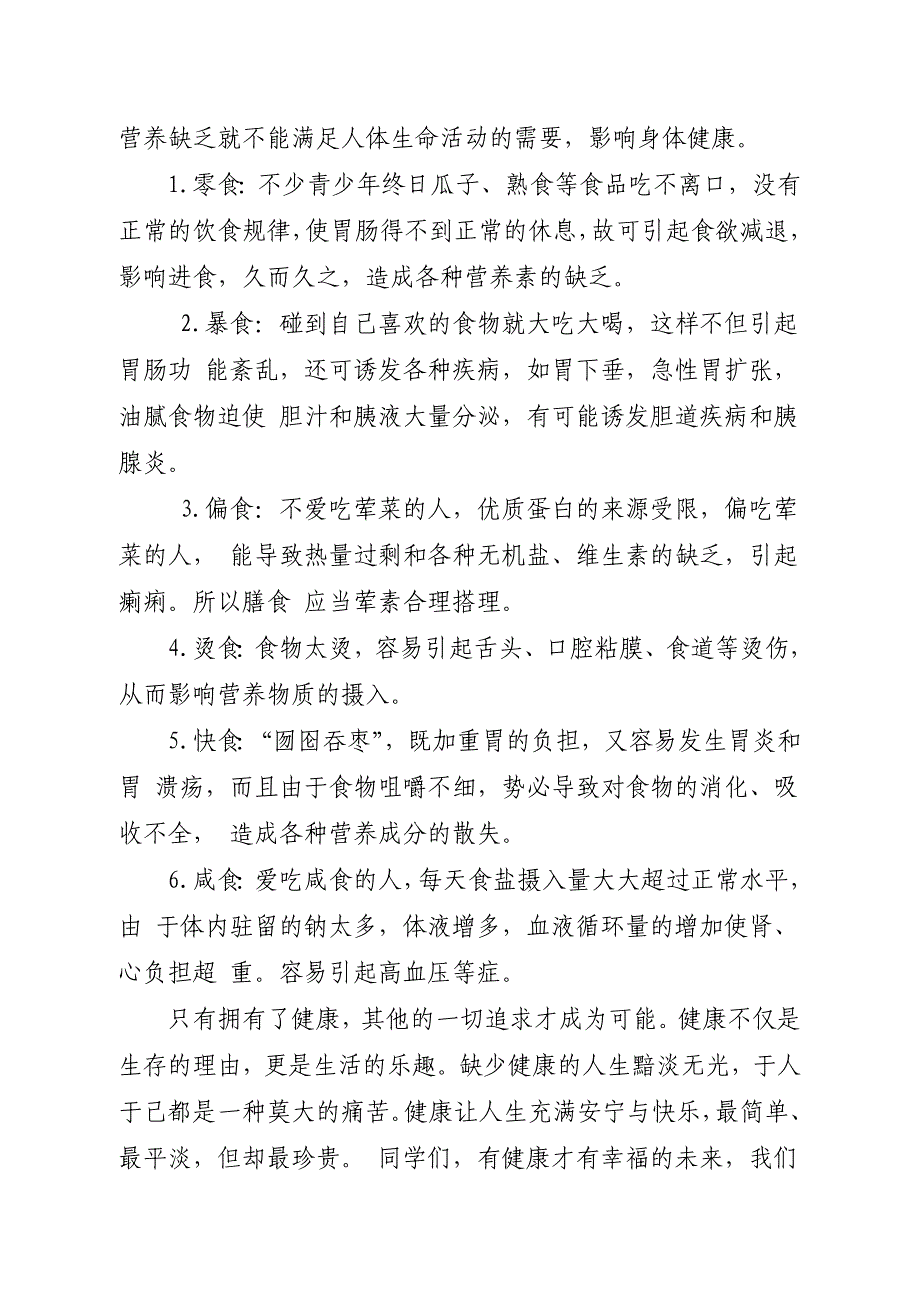 营养缺乏就不能满足人体生命活动的需要，影响身体健康。
1.零食：不少青少年终日瓜子、熟食等食品吃不离口，没有
正常的饮食规律，使胃肠得不到正常的休息，故可引起食欲减退，
影响进食，久而久之，造成各种营养素的缺乏。
2.暴食：碰到自己喜欢的食物就大吃大喝，这样不但引起
胃肠功 能紊乱，还可诱发各种疾病，如胃下垂，急性胃扩张，
油腻食物迫使 胆汁和胰液大量分泌，有可能诱发胆道疾病和胰
腺炎。
3.偏食：不爱吃荤菜的人，优质蛋白的来源受限，偏吃荤
菜的人， 能导致热量过剩和各种无机盐、维生素的缺乏，引起
癞痢。所以膳食 应当荤素合理搭理。
4.烫食：食物太烫，容易引起舌头、口腔粘膜、食道等烫伤，
从而影响营养物质的摄入。
5.快食：“囫囵吞枣”，既加重胃的负担，又容易发生胃炎和
胃 溃疡，而且由于食物咀嚼不细，势必导致对食物的消化、吸
收不全， 造成各种营养成分的散失。
6.咸食：爱吃咸食的人，每天食盐摄入量大大超过正常水平，
由 于体内驻留的钠太多，体液增多，血液循环量的增加使肾、
心负担超 重。容易引起高血压等症。
只有拥有了健康，其他的一切追求才成为可能。健康不仅是
生存的理由，更是生活的乐趣。缺少健康的人生黯淡无光，于人
于己都是一种莫大的痛苦。健康让人生充满安宁与快乐，最简单、
最平淡，但却最珍贵。 同学们，有健康才有幸福的未来，我们